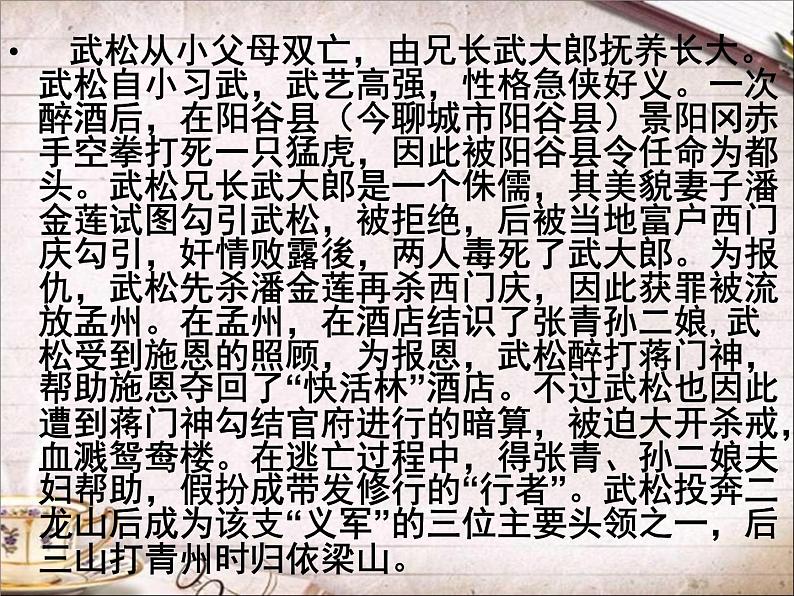 • 武松从小父母双亡，由兄长武大郎抚养长大。
武松自小习武，武艺高强，性格急侠好义。一次
醉酒后，在阳谷县（今聊城市阳谷县）景阳冈赤
手空拳打死一只猛虎，因此被阳谷县令任命为都
头。武松兄长武大郎是一个侏儒，其美貌妻子潘
金莲试图勾引武松，被拒绝，后被当地富户西门
庆勾引，奸情败露後，两人毒死了武大郎。为报
仇，武松先杀潘金莲再杀西门庆，因此获罪被流
放孟州。在孟州，在酒店结识了张青孙二娘,武
松受到施恩的照顾，为报恩，武松醉打蒋门神，
帮助施恩夺回了“快活林”酒店。不过武松也因此
遭到蒋门神勾结官府进行的暗算，被迫大开杀戒，
血溅鸳鸯楼。在逃亡过程中，得张青、孙二娘夫
妇帮助，假扮成带发修行的“行者”。武松投奔二
龙山后成为该支“义军”的三位主要头领之一，后
三山打青州时归依梁山。